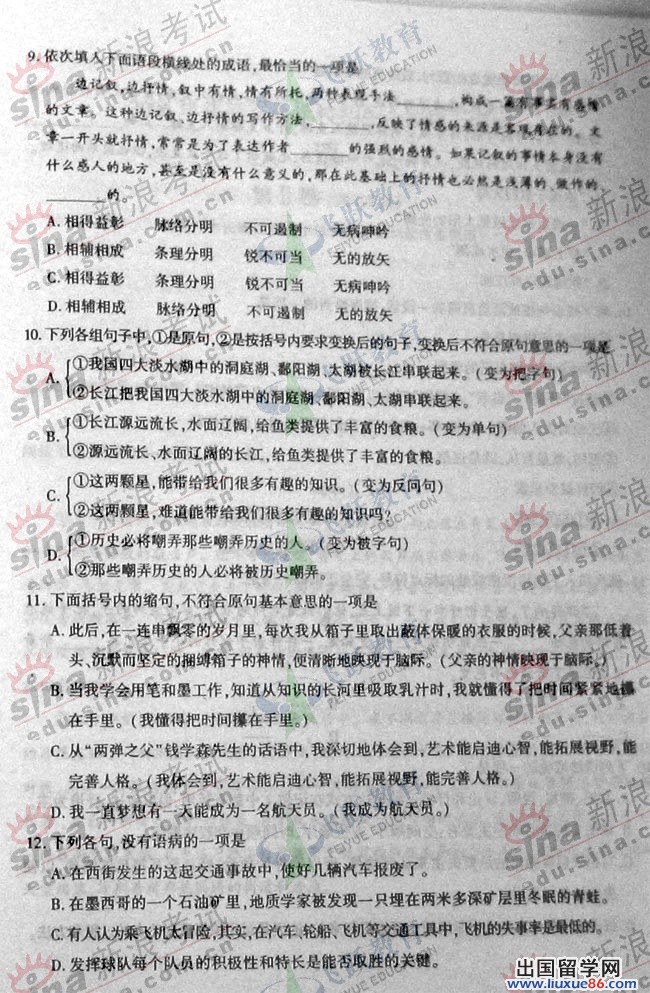 9. 依次填入下面语段横线处的成语,最恰当的一项是
边记叙,边抒情,叙中有情,情有所托,两种表现手法________,构成一篇有事实有感情
的文章。这种边记叙、边抒情的写作方法,________,反映了情感的来源是客观存在的。文
章一开头就抒情,常常是为了表达作者________的强烈的感情。如果记叙的事情本身没有
什么感人的地方,甚至是没有什么意义的,那在此基础上的抒情也必然是浅薄的、做作的
________的。
A. 相得益彰 脉络分明 不可遏制 无病呻吟
B. 相辅相成 条理分明 不可遏制 无病呻吟
C. 相得益彰 条理分明 锐不可当 无的放矢
D. 相辅相成 脉络分明 不可遏制 无的放矢
10. 下列各组句子中,①是原句,②是按括号内要求变换后的句子,变换后不符合原句意思的一项是
A. ①我国四大淡水湖中的洞庭湖、鄱阳湖、太湖被长江串联起来。(变为把字句)
②长江把我国四大淡水湖中的洞庭湖、鄱阳湖、太湖串联起来。
B. ①长江源远流长、水面辽阔,给鱼类提供了丰富的食粮。(变为单句)
②源远流长、水面辽阔的长江,给鱼类提供了丰富的食粮。
C. ①这两颗星,能带给我们很多有趣的知识。(变为反问句)
②这两颗星,难道能带给我们很多有趣的知识吗?
D. ①历史必将嘲弄那些嘲弄历史的人。(变为被字句)
②那些嘲弄历史的人必将被历史嘲弄。
11. 下面括号内的缩句,不符合原句基本意思的一项是
A. 此后,在一连串飘零的岁月里,每次我从箱子里取出蔽体保暖的衣服的时候,父亲那低着
头、沉默而坚定的捆缚箱子的神情,便清晰地映现于脑际。(父亲的神情映现于脑际。)
B. 当我学会用笔和墨工作,知道从知识的长河里吸取乳汁时,我就懂得了把时间紧紧地攥
在手里。(我懂得把时间攥在手里。)
C. 从“两弹之父”钱学森先生的话语中,我深切地体会到,艺术能启迪心智,能拓展视野,能
完善人格。(我体会到,艺术能启迪心智,能拓展视野,能完善人格。)
D. 我一直梦想有一天能成为一名航天员。(我成为航天员。)
12. 下列各句,没有语病的一项是
A. 在西街发生的这起交通事故中,使好几辆汽车报废了。
B. 在墨西哥的一个石油矿里,地质学家被发现一只埋在两米多深矿层里冬眠的青蛙。
C. 有人认为乘飞机太冒险,其实,在汽车、轮船、飞机等交通工具中,飞机的失事率是最低的。
D. 发挥球队每个队员的积极性和特长是能否取胜的关键。
sina 新浪考试
edu.sina.com.cn
飞跃教育
FEIYUE EDUCATION
出国留学网
www.liuxue86.com